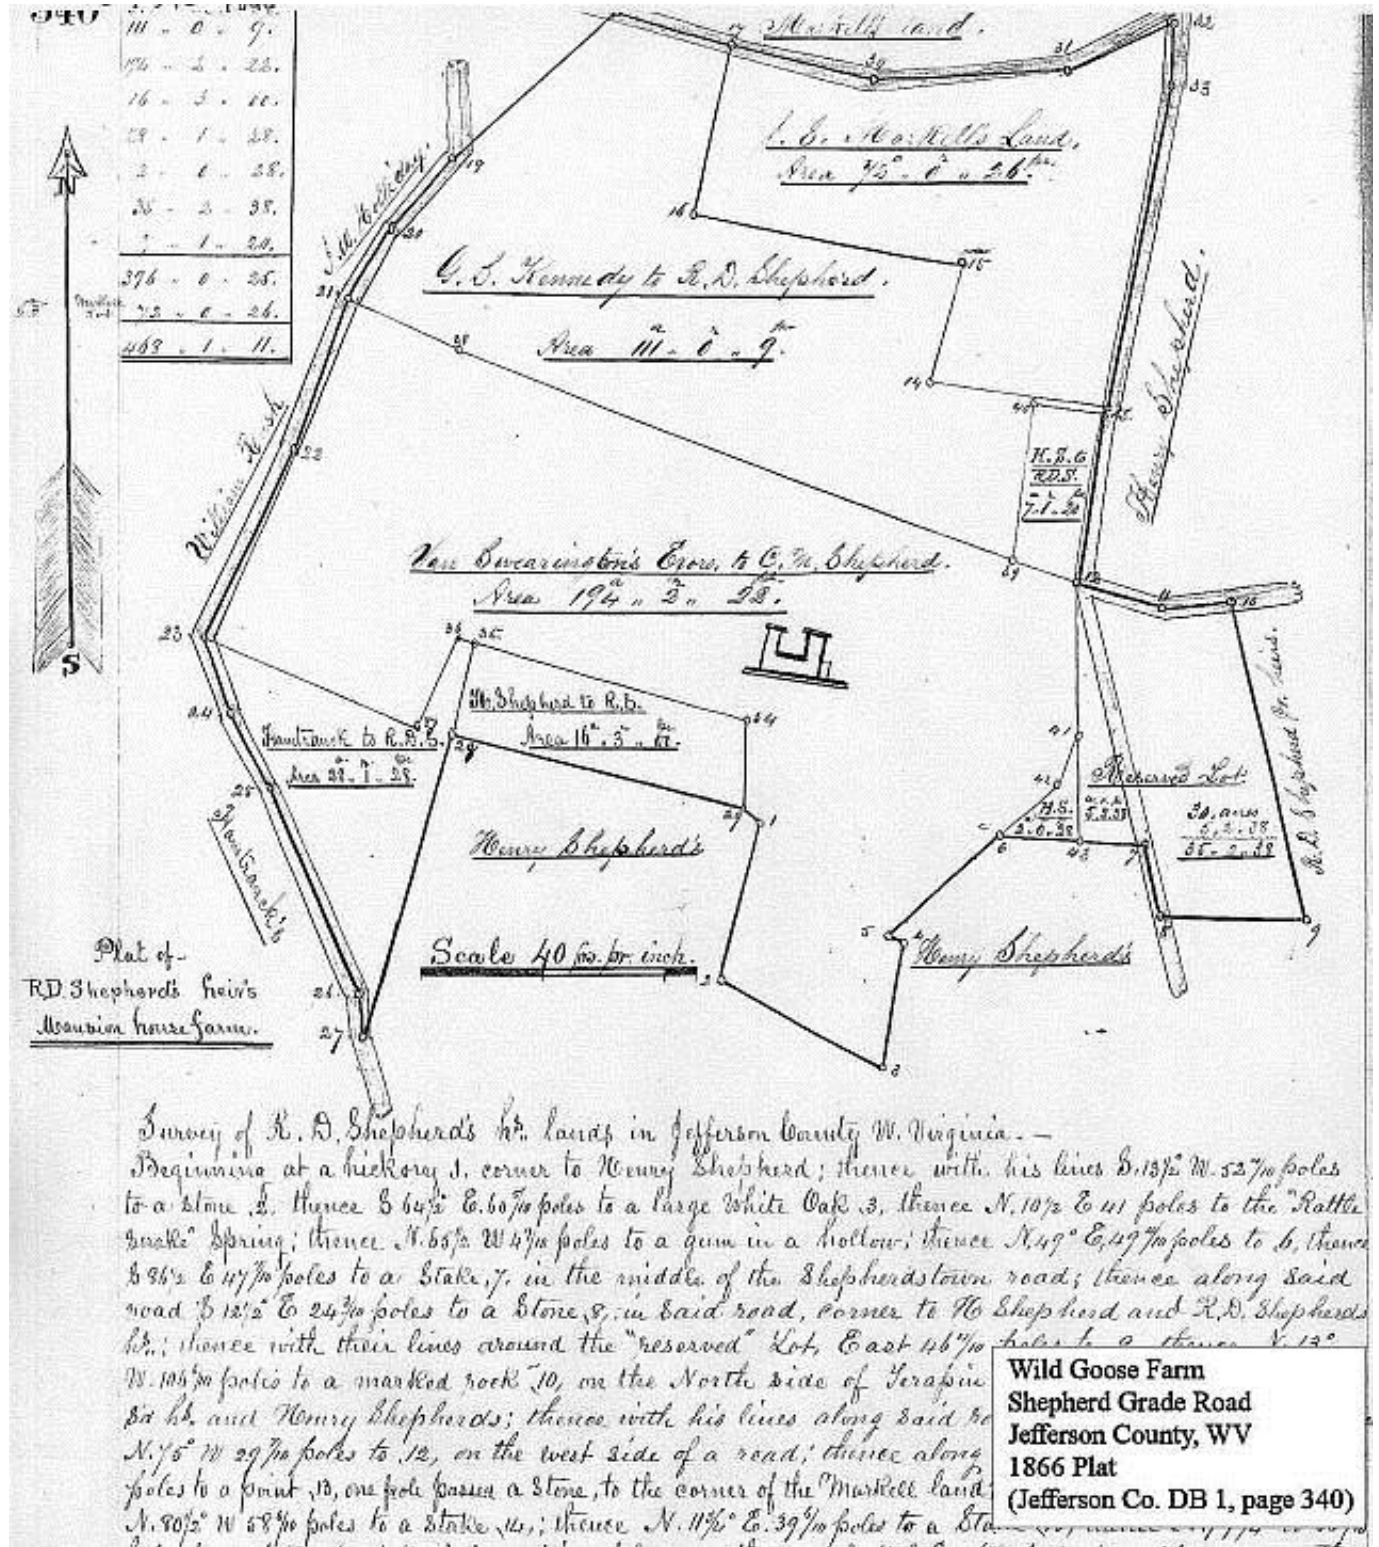 340
111 - 0 - 9.
16 - 3 - 00.
28 - 1 - 28.
2 - 0 - 28.
35 - 2 - 38.
7 - 1 - 20.
376 - 0 - 25.
72 - 0 - 26.
463 - 1 - 11.
N
S
Markell's Land.
31
32
33
Markell's Land.
Area 72 a " 0 " 26 po.
19
20
21
22
23
24
25
26
27
16
15
14
G. S. Kennedy to R. D. Shepherd.
Area 111 a - 0 " 9 po.
38
39
40
Henry Shepherd.
H. S. to
R.D.S.
7 - 1 - 20
William
Van Swearington's Exors. to C. M. Shepherd.
Area 194 a " 2 " 22
12
11
10
36
35
34
37
28
29
Shepherd to R. S.
Area 16 a - 3 -
to R. D. S.
Area 28 - 1 - 28
Henry Shepherd's
1
2
3
4
5
6
7
8
9
41
42
43
H. S.
2 - 0 - 28
Reserved Lot
30 acres
5 . 2 . 38
35 - 2 - 38
R. D. Shepherd's heirs.
Henry Shepherd's
Scale 40 pos. pr. inch.
Plat of
R.D. Shepherd's heirs
Mansion house farm.
Survey of R. D. Shepherd's hrs. lands in Jefferson County W. Virginia. —
Beginning at a hickory 1. corner to Henry Shepherd; thence with his lines S. 13½° W. 52 poles
to a stone 2. thence S 64½° E. 60 poles to a large White Oak 3, thence N. 10½ E 41 poles to the "Rattle
Snake" Spring; thence N. 65½ W 4 poles to a gum in a hollow; thence N. 49° E, 49 poles to 6, thence
S 86½ E 47 poles to a Stake, 7. in the middle of the Shepherdstown road; thence along said
road S 12½° E 24 poles to a Stone, 8, in said road, corner to H Shepherd and R.D. Shepherds
hrs.; thence with their lines around the "reserved" Lot, East 46 poles to 9 thence N. 13°
W. 106 poles to a marked rock 10, on the North side of Terapin
Sd hrs and Henry Shepherds; thence with his lines along said
N. 75° W 29 poles to 12, on the west side of a road; thence along
poles to a point 13, one pole passed a Stone, to the corner of the Markell land
N. 80½° W 58 poles to a Stake 14; thence N. 11½° E. 39 poles to a
Wild Goose Farm
Shepherd Grade Road
Jefferson County, WV
1866 Plat
(Jefferson Co. DB 1, page 340)